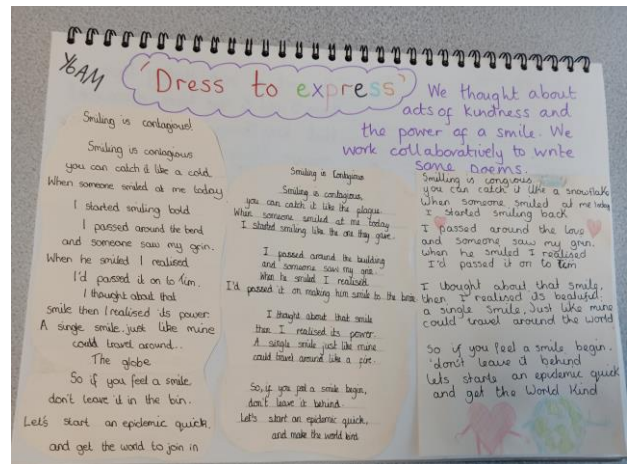 Y6AM
'Dress to express'
We thought about
acts of kindness and
the power of a smile. We
work collaboratively to write
some poems.
Smiling is contagious!
Smiling is contagious
you can catch it like a cold.
When someone smiled at me today
I started smiling bold
I passed around the bend
and someone saw my grin.
When he smiled I realised
I'd passed it on to Tim.
I thought about that
smile then I realised its power.
A single smile just like mine
could travel around..
The globe
So if you feel a smile
don't leave it in the bin.
Let's start an epidemic quick.
and get the world to join in
Smiling is Contagious
Smiling is contagious,
you can catch it like the plague.
When someone smiled at me today
I started smiling like the one they gave.
I passed around the building
and someone saw my
When he smiled I realised.
I'd passed it on making him smile to the
I thought about that smile
then I realised its power.
A single smile just like mine
could travel around like a fire.
So, if you feel a smile begin,
don't leave it behind.
Let's start an epidemic quick,
and make the world kind
Smilling is
you can catch it like a snowflake
When someone smiled at me today
I started smiling back
I passed around the love
and someone saw my grin.
when he smiled I realised
I'd passed it on to tim
I thought about that smile,
then I realised its
a single smile, Just like mine
could travel around the world
So if you feel a smile begin.
don't leave it behind
Lets starte an epidemic quick
and get the World Kind